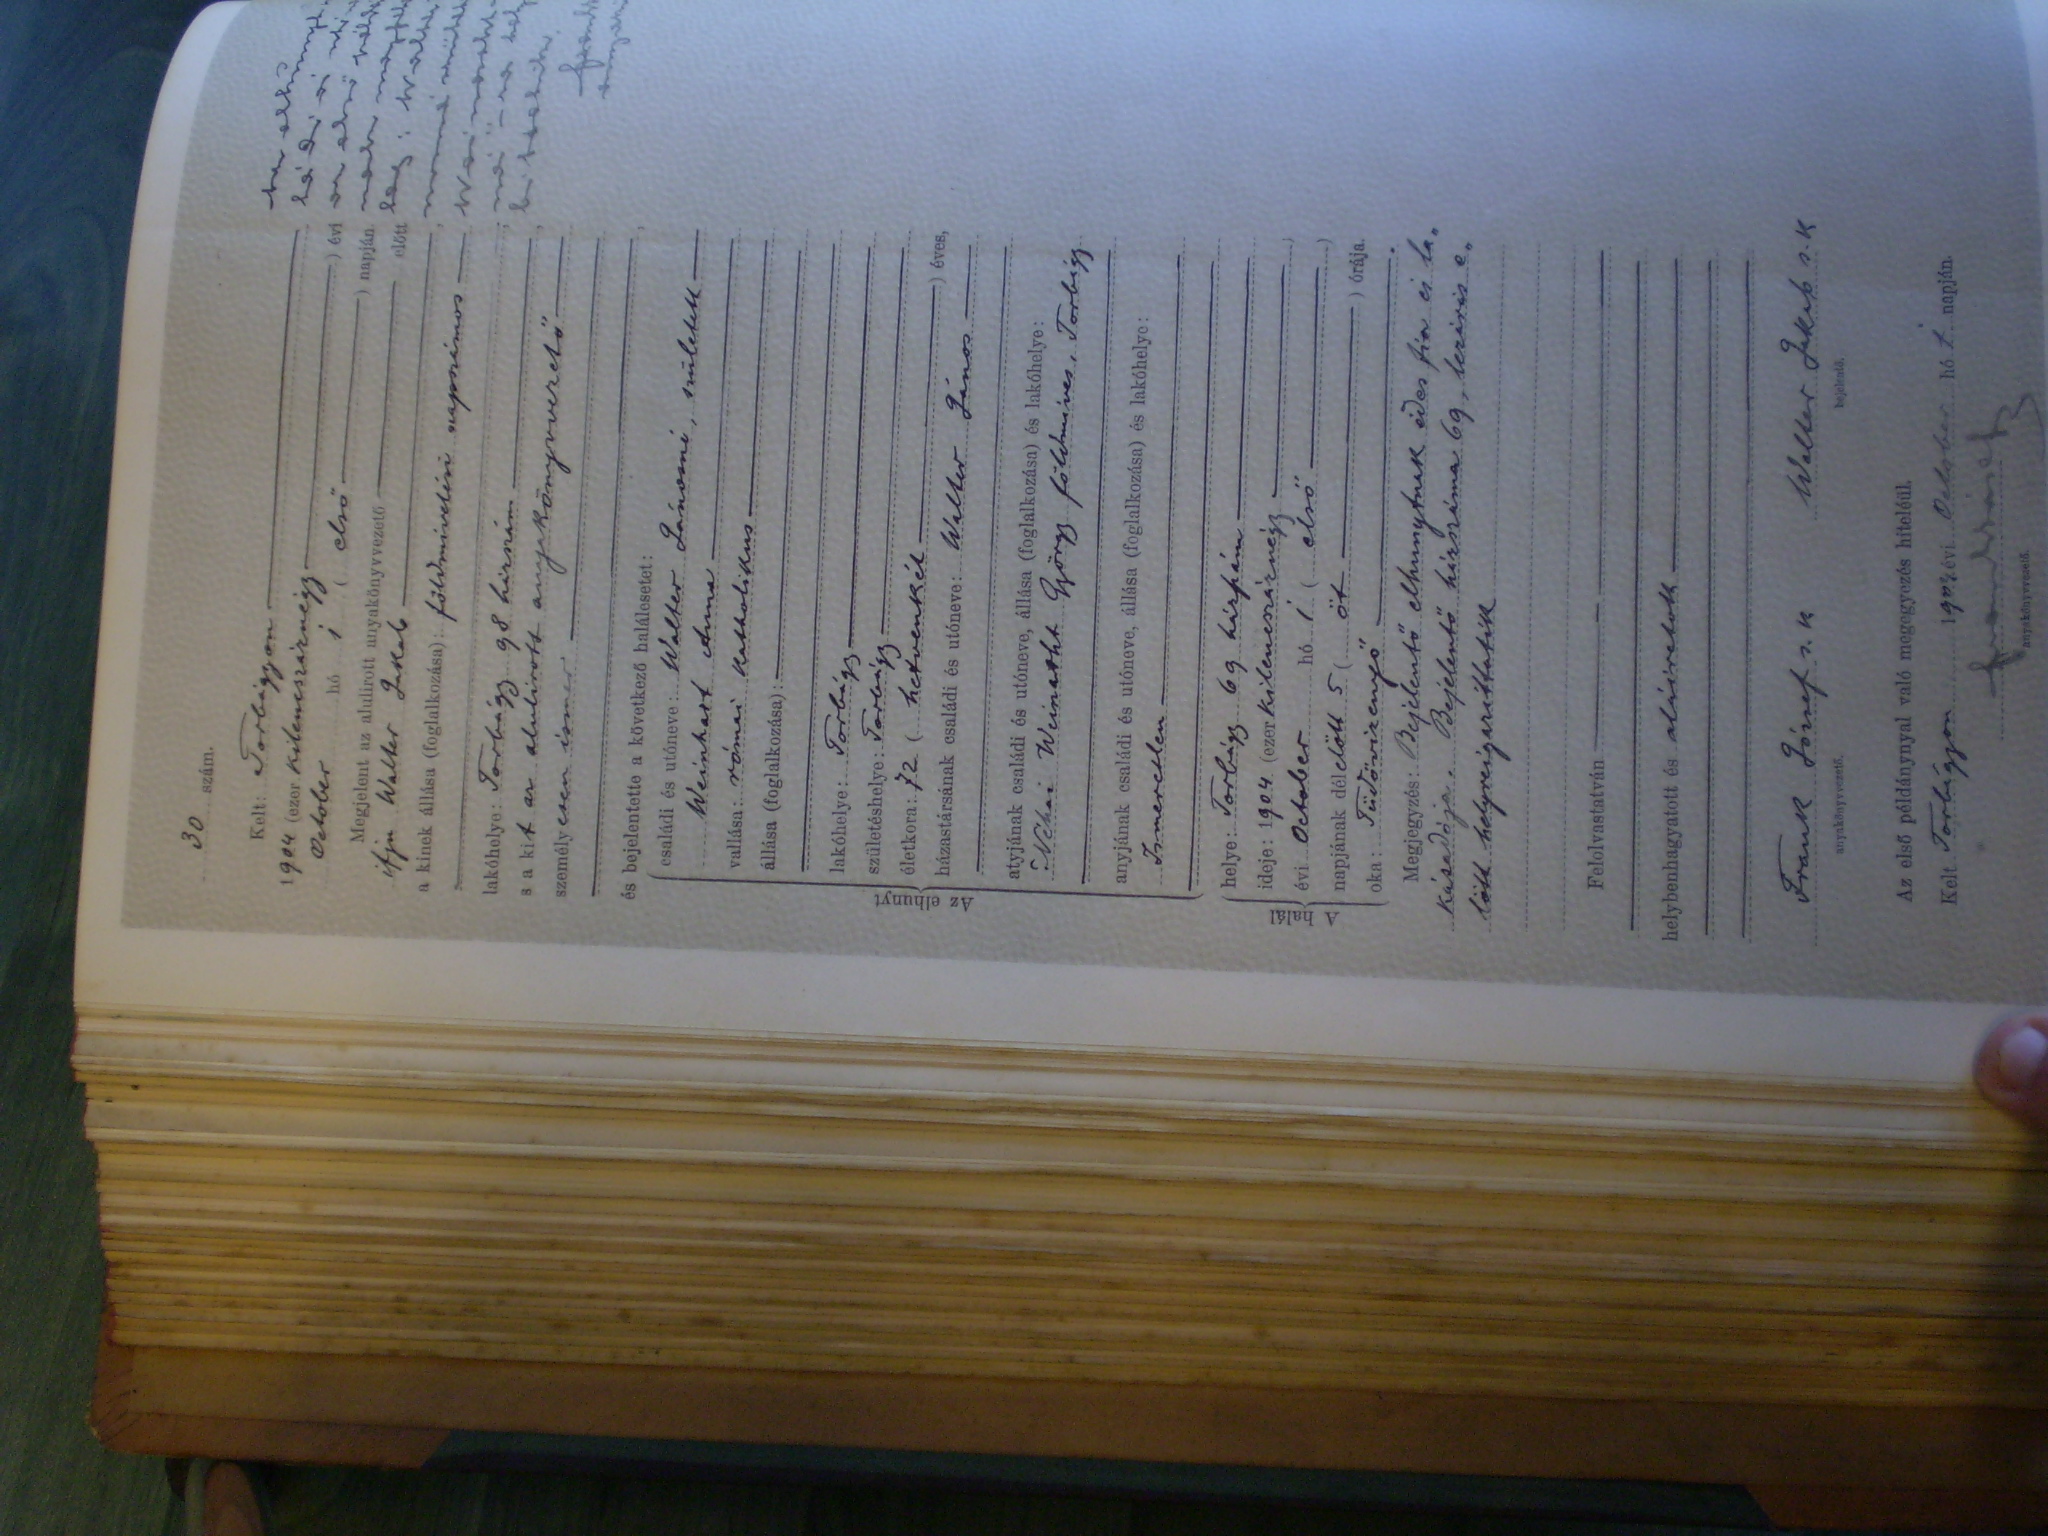 30 szám.
Kelt: Torbágyon
1904 (ezer kilencszáznégy ) évi
October hó 1 ( első ) napján
Megjelent az alulirott anyakönyvezető előtt
ifju Walter Jakab
a kinek állása (foglalkozása): földmivelési napszámos
lakóhelye: Torbágy 98 házszám
s a kit az alulirott anyakönyvvezető
személyesen ismer
és bejelentette a következő halálesetet:
Az elhunyt
családi és utóneve: Walter Jánosné, született
Weinhart Anna
vallása: római katholikus
állása (foglalkozása):
lakóhelye: Torbágy
születéshelye: Torbágy
életkora: 72 ( hetvenkét ) éves,
házastársának családi és utóneve: Walter János
atyjának családi és utóneve, állása (foglalkozása) és lakóhelye:
Néhai Weinhart György földmives, Torbágy
anyjának családi és utóneve, állása (foglalkozása) és lakóhelye:
Ismeretlen
A halál
helye: Torbágy 69 házszám
ideje: 1904 (ezer kilencszáznégy )
évi October hó 1 ( első )
napjának délelött 5 ( öt ) órája.
oka: Tüdővizenyő
Megjegyzés: Bejelentő elhunytnak édes fia és la„
kásadója. Bejelentő házszáma 69, lezárás e„
lött helyreigazittatik
Felolvastatván
helybenhagyatott és aláiratott
Frank József s. k Walter Jakab s. k
anyakönyvvezető. bejelentő.
Az első példánynyal való megegyezés hiteléül.
Kelt Torbágyon 1904 évi October hó 1. napján.
anyakönyvvezető.